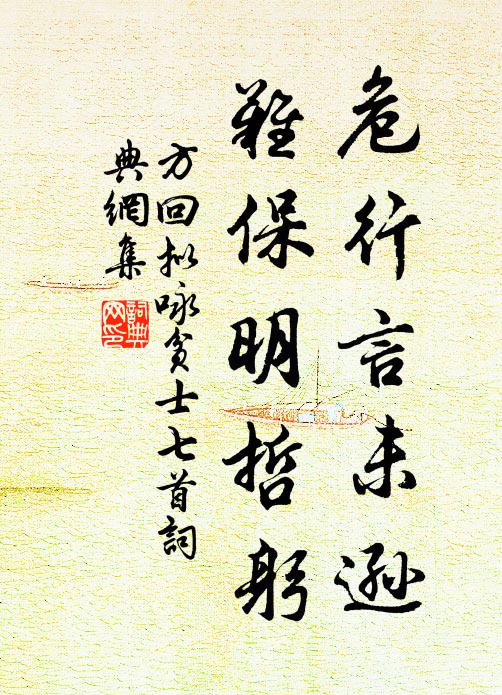 危行言未遜
難保明哲躬
方回拟咏贫士七首詞
典網集
詞典網印